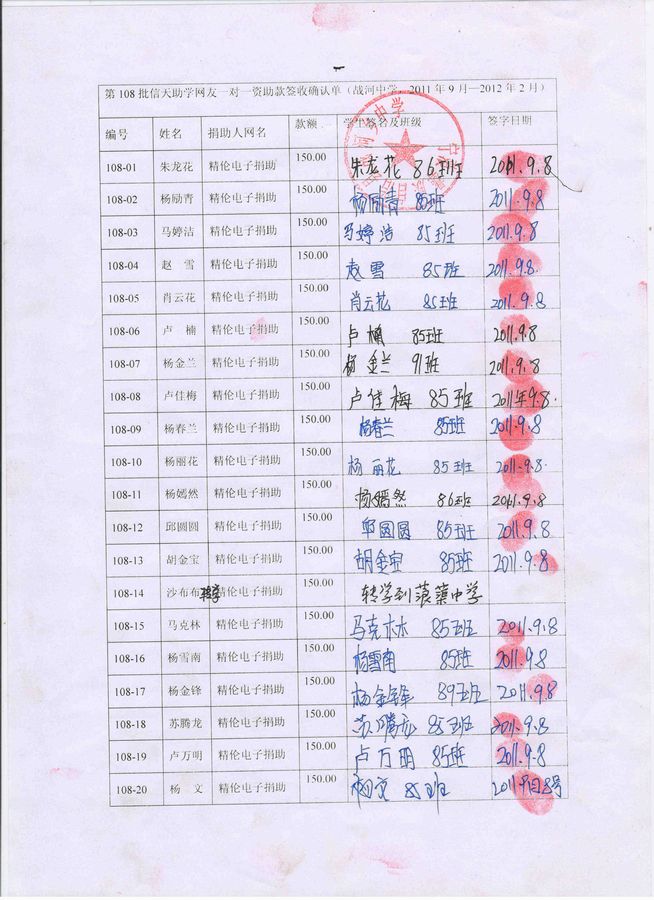 第 108 批信天助学网友一对一资助款签收确认单（战河中学，2011 年 9 月—2012 年 2 月）
编号 姓名 捐助人网名 款额 学生签名及班级 签字日期
108-01 朱龙花 精伦电子捐助 150.00 朱龙花 86班 2011.9.8
108-02 杨励青 精伦电子捐助 150.00 杨励青 85班 2011.9.8
108-03 马婷洁 精伦电子捐助 150.00 马婷洁 85班 2011.9.8
108-04 赵 雪 精伦电子捐助 150.00 赵雪 85班 2011.9.8.
108-05 肖云花 精伦电子捐助 150.00 肖云花 85班 2011.9.8
108-06 卢 楠 精伦电子捐助 150.00 卢楠 85班 2011.9.8
108-07 杨金兰 精伦电子捐助 150.00 杨金兰 91班 2011.9.8
108-08 卢佳梅 精伦电子捐助 150.00 卢佳梅 85班 2011年9.8.
108-09 杨春兰 精伦电子捐助 150.00 杨春兰 85班 2011.9.8
108-10 杨丽花 精伦电子捐助 150.00 杨丽花 85班 2011.9.8
108-11 杨嫣然 精伦电子捐助 150.00 杨嫣然 86班 2011.9.8
108-12 邱圆圆 精伦电子捐助 150.00 邱圆圆 85班 2011.9.8
108-13 胡金宝 精伦电子捐助 150.00 胡金宝 85班 2011.9.8
108-14 沙布布 精伦电子捐助 150.00 转学到蒗蕖中学
108-15 马克林 精伦电子捐助 150.00 马克林 85班 2011.9.8
108-16 杨雪南 精伦电子捐助 150.00 杨雪南 85班 2011.9.8
108-17 杨金锋 精伦电子捐助 150.00 杨金锋 89班 2011.9.8
108-18 苏腾龙 精伦电子捐助 150.00 苏腾龙 85班 2011.9.8
108-19 卢万明 精伦电子捐助 150.00 卢万明 85班 2011.9.8
108-20 杨 文 精伦电子捐助 150.00 杨文 85班 2011年9月8号